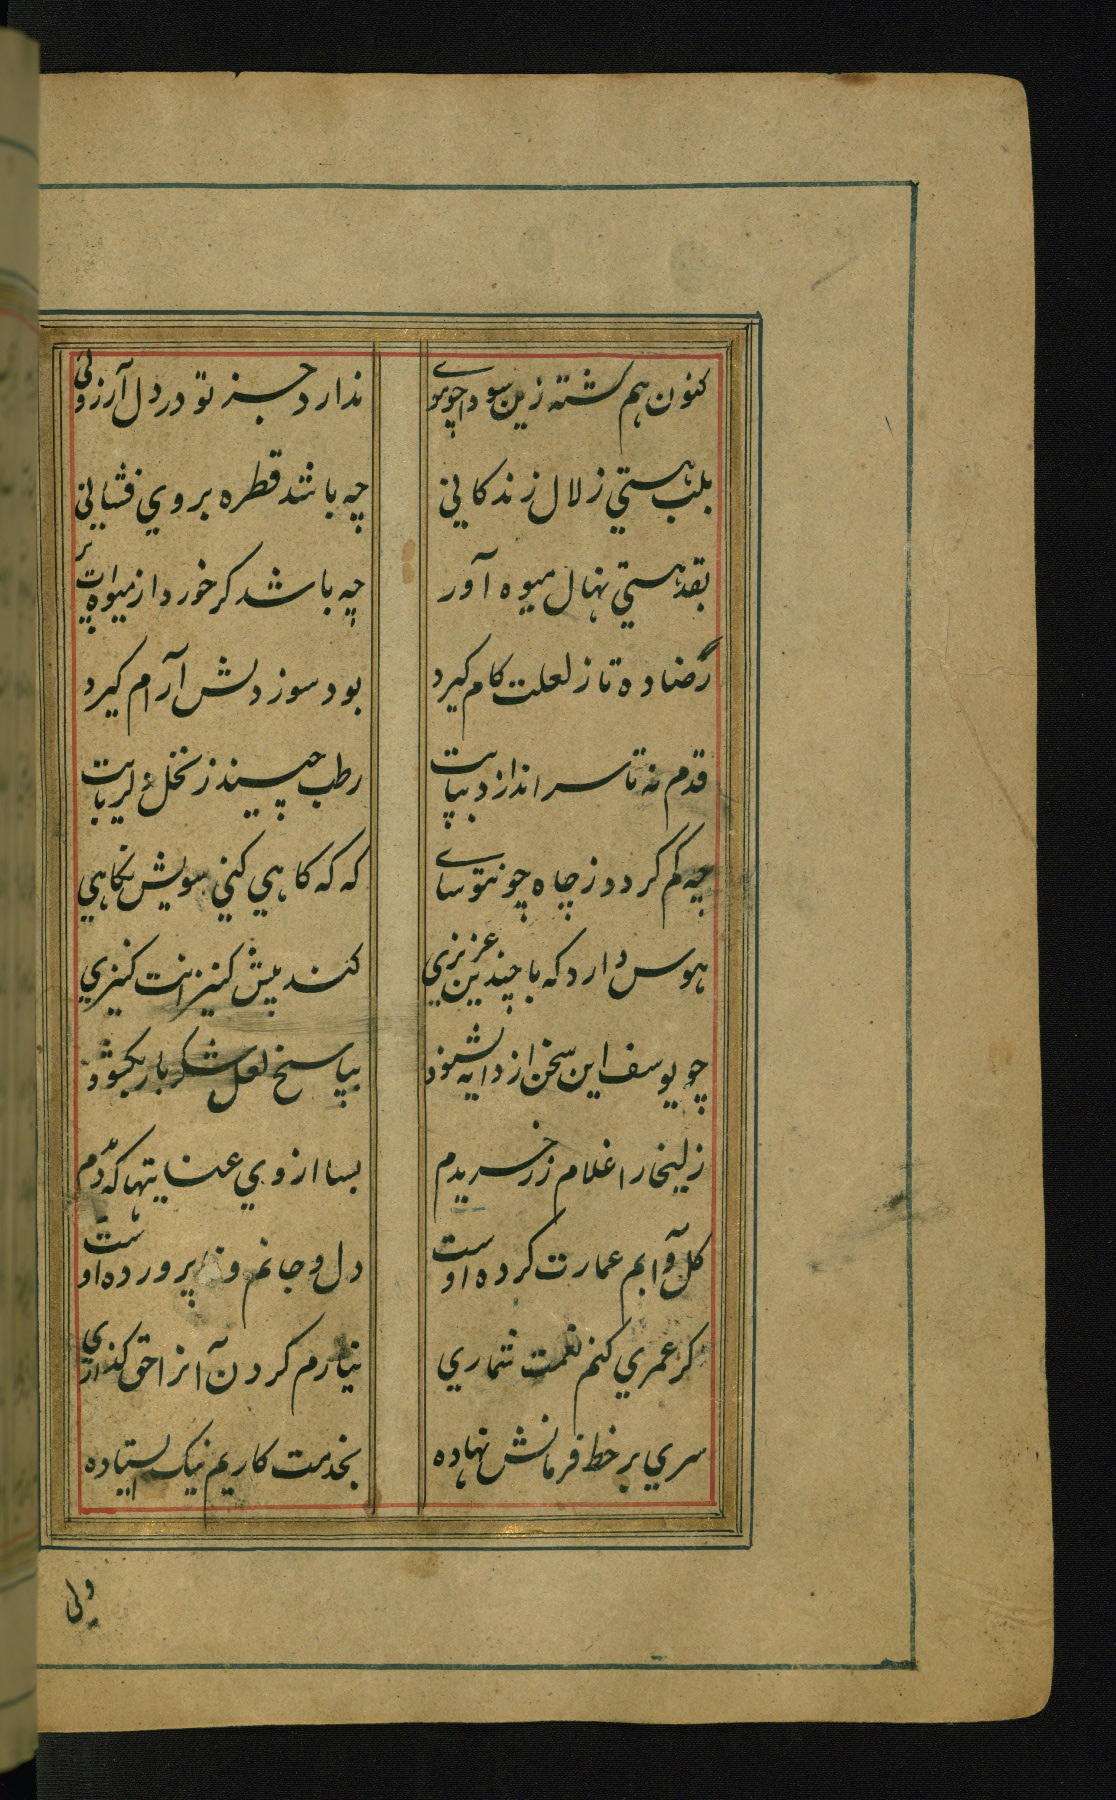 کنون هم گشته زین سودا چو موے ندارد جز تو در دل آرزوئی
بلب هستی زلال زندکانی چه باشد قطره بروی فشانی
بقد هستی نهال میوه آور چه باشد کر خورد از میوه ات بر
رضا ده تا ز لعلت کام کیرد بود سوز دلش آرام کیرد
قدم نه تا سر اندازد بپایت رطب چیند ز نخل دلربایت
چه کم کردد ز چاه چون تو شاے که که کاهی کنی سویش نکاهی
هوس دارد که با چندین عزیزی کند پیش کنیزانت کنیزی
چو یوسف این سخن از دایه بشنود بپاسخ لعل شکر بار بکشود
زلیخا را غلام زر خریدم بسا از وی عنایتها که دیدم
کل و آبم عمارت کرده اوست دل و جانم وفا پرورده اوست
کر عمری کنم نعمت شماری نیارم کردن آنرا حق کذاری
سری بر خط فرمانش نهاده بخدمت کاریم نیک ایستاده
ولی